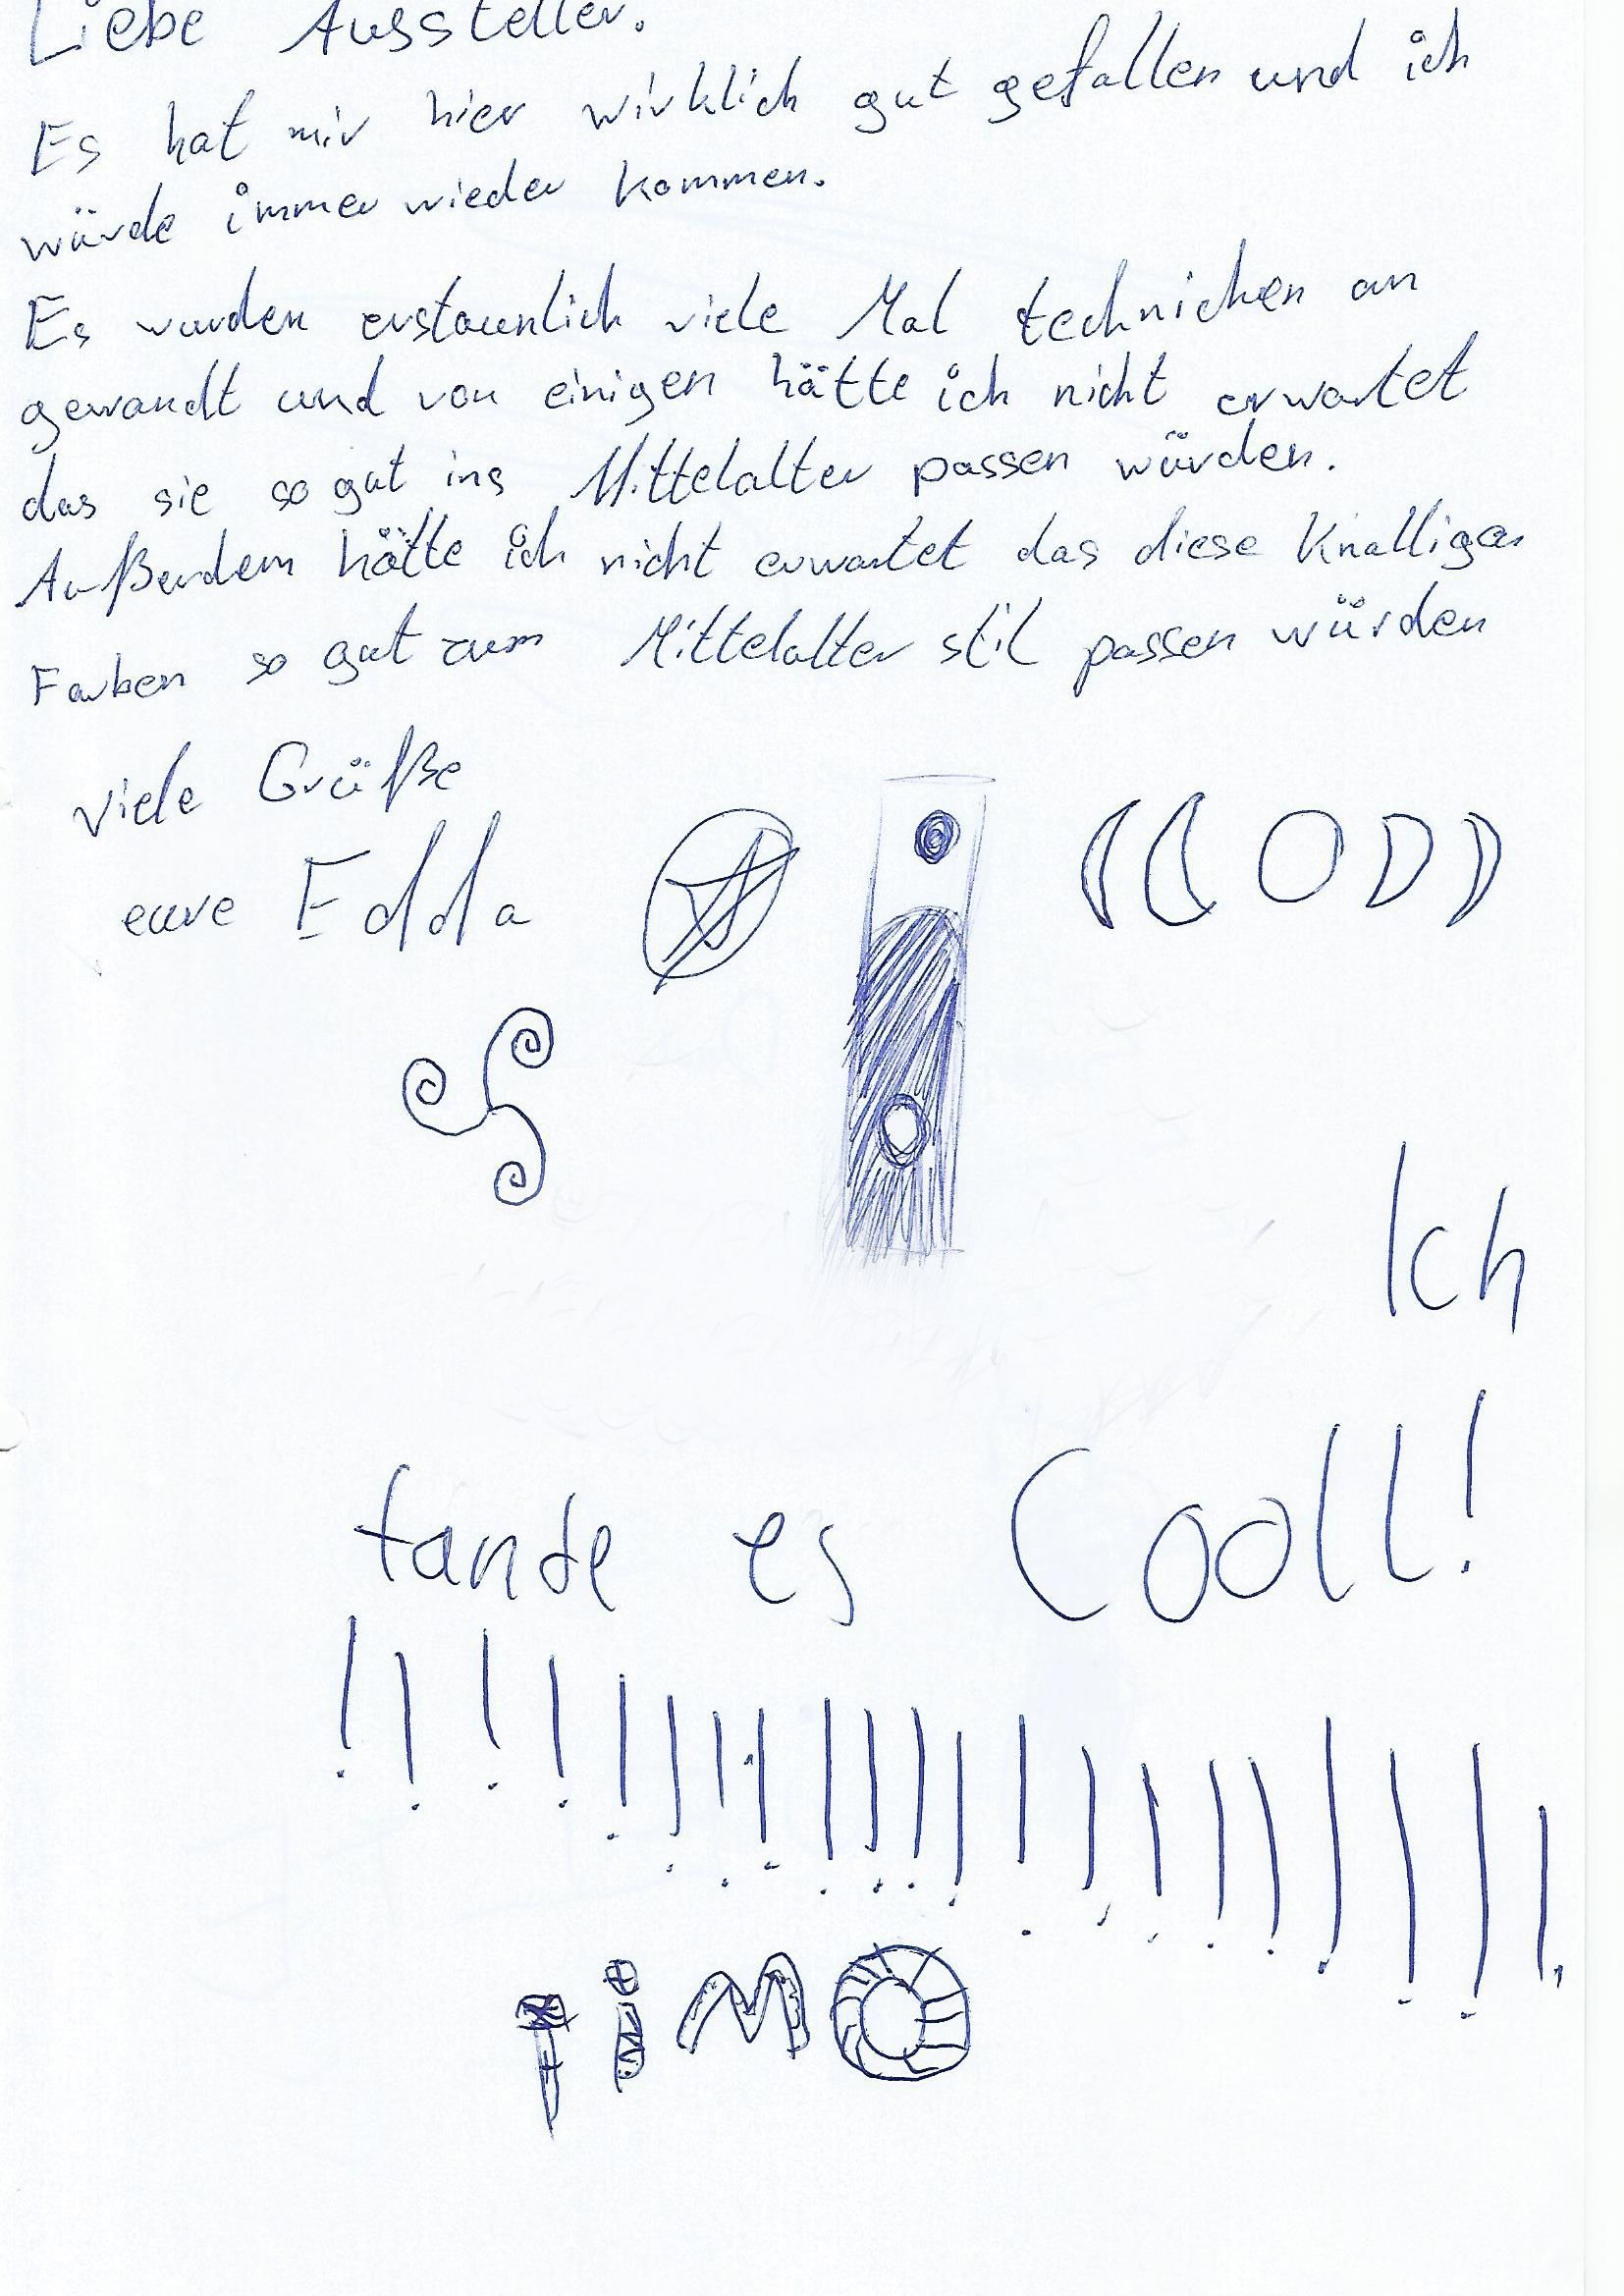 Liebe Aussteller.
Es hat mir hier wirklich gut gefallen und ich
würde immer wieder kommen.
Es wurden erstaunlich viele Mal techniken an
gewandt und von einigen hätte ich nicht erwartet
das sie so gut ins Mittelalter passen würden.
Außerdem hätte ich nicht erwartet das diese Knalligen
Farben so gut zum Mittelalter stil passen würden
viele Grüße
eure Edda
Ich
fande es Cooll!
! ! ! ! ! ! ! ! ! ! ! ! ! ! ! ! ! ! ! ! !
TiMO